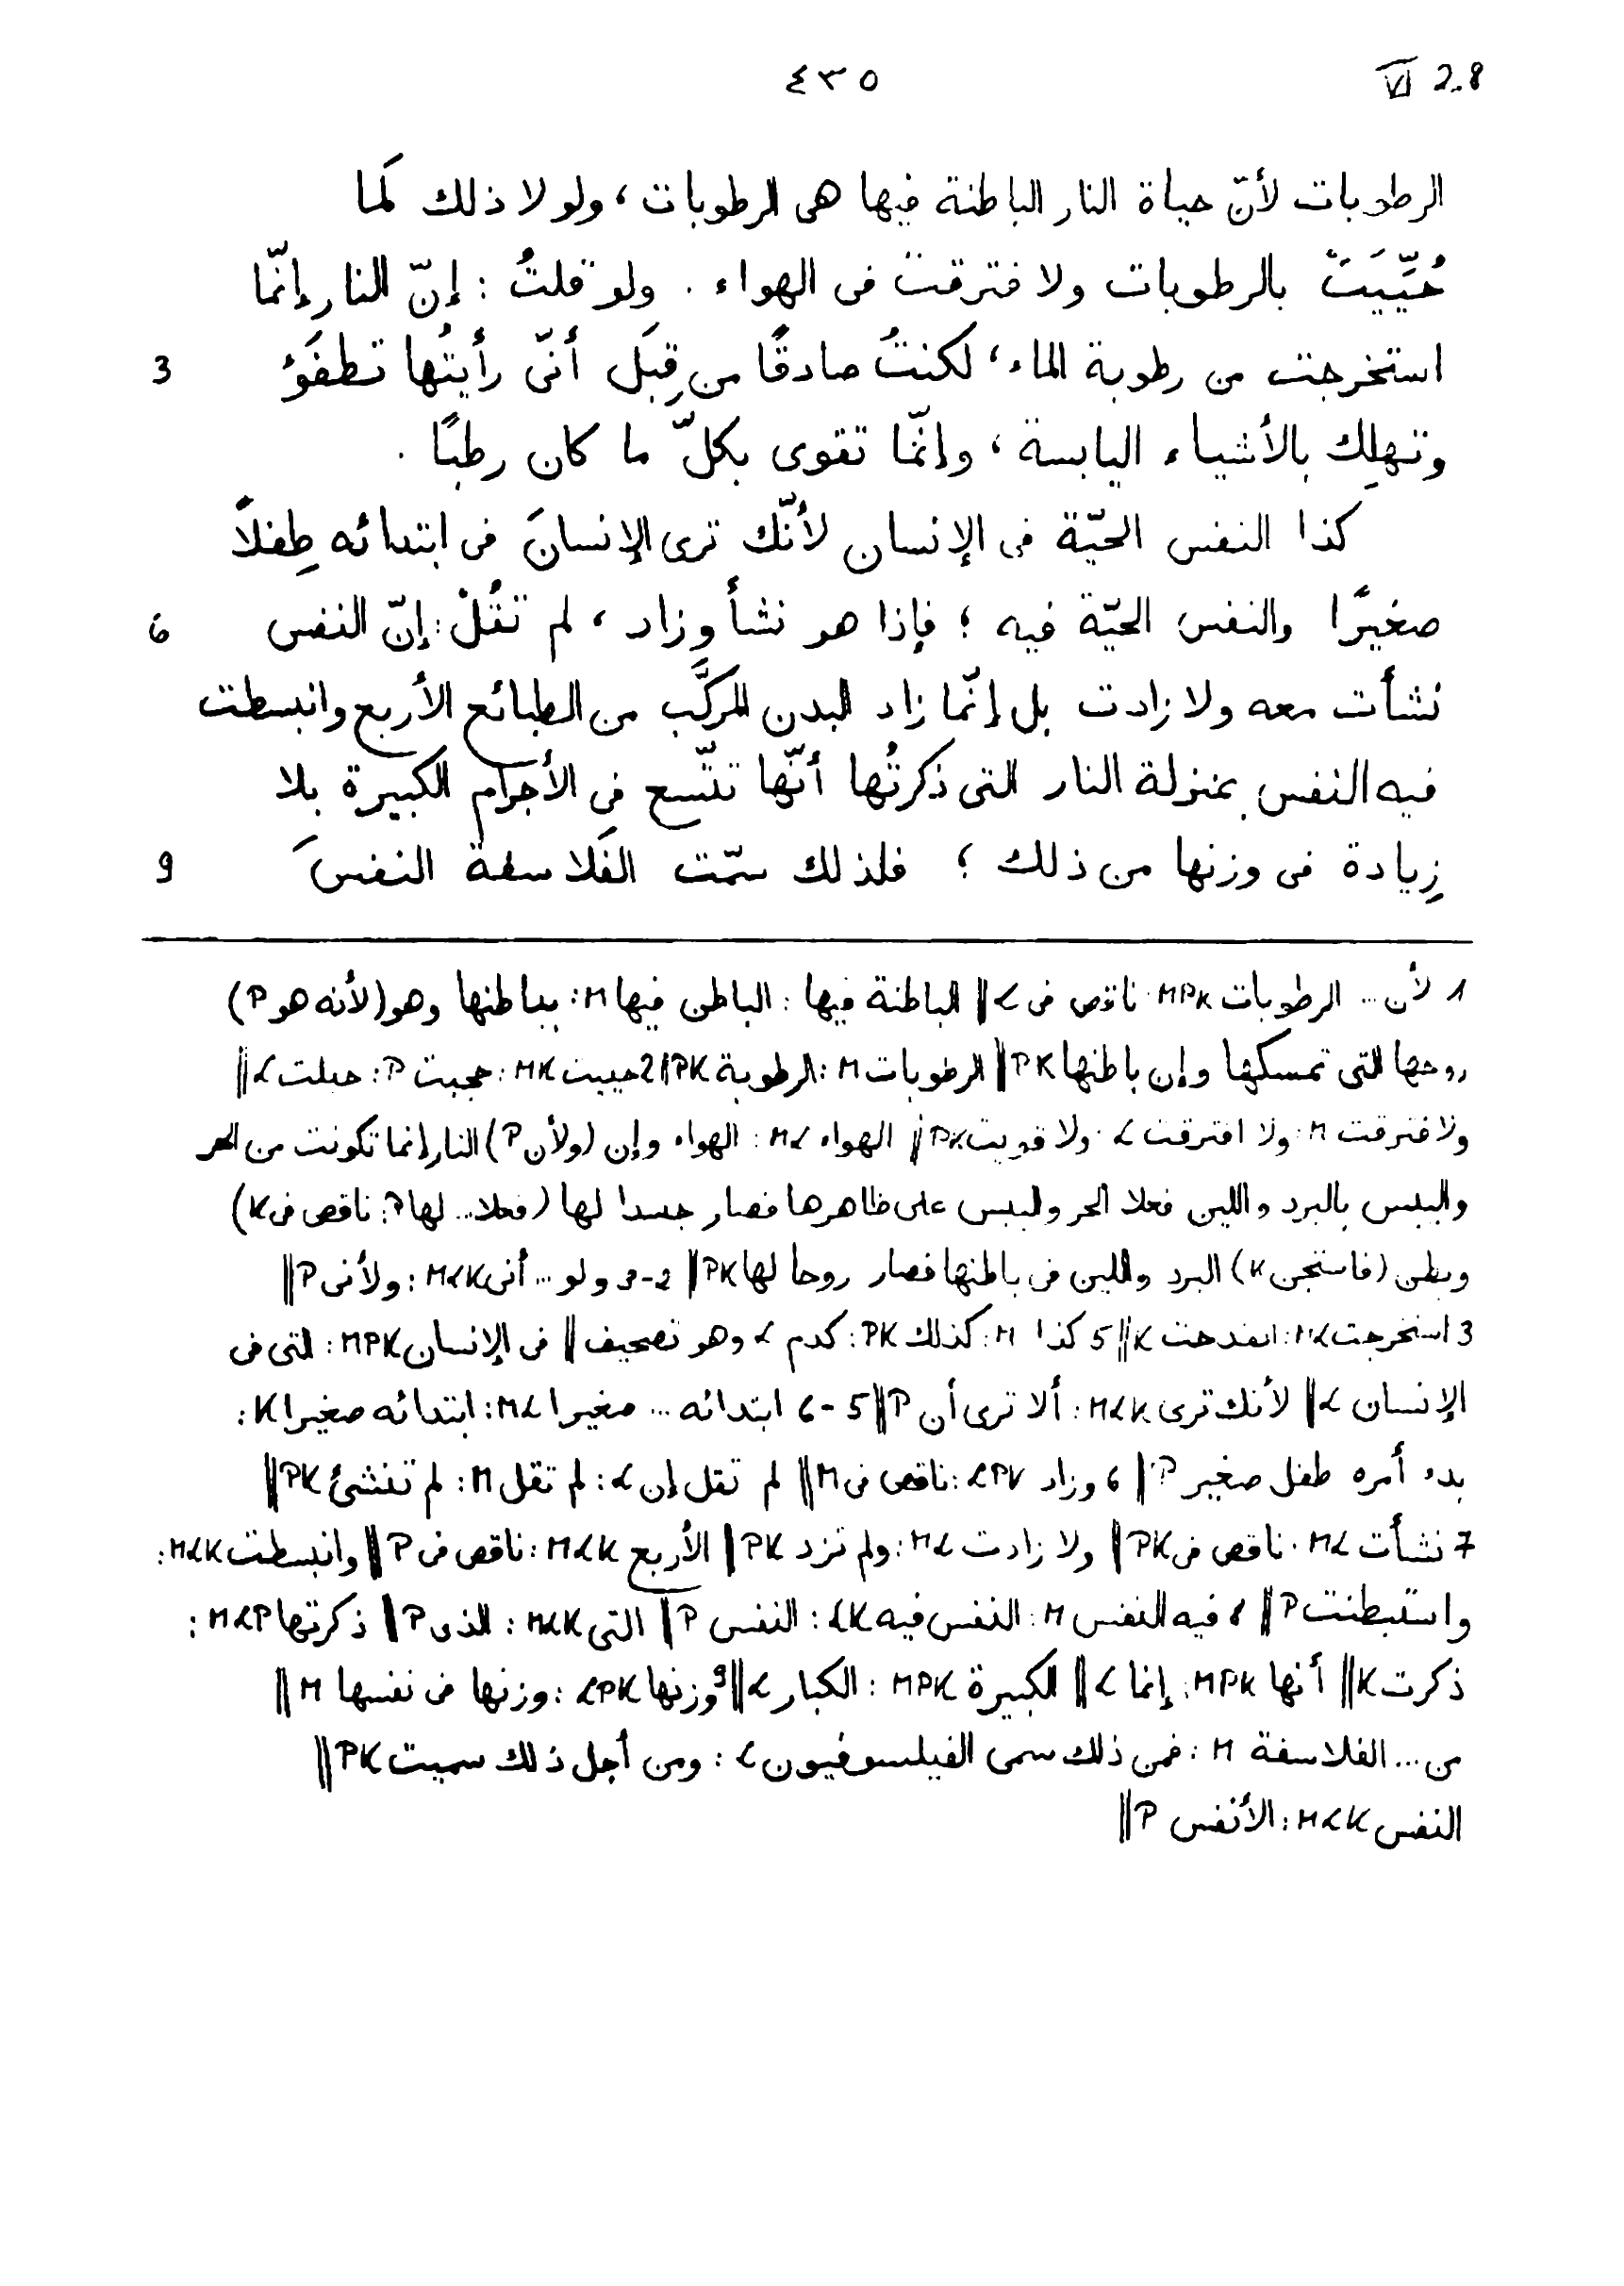 ٤٣٥ VI 2.8
الرطوبات لأنّ حياة النار الباطنة فيها هى الرطوبات ، ولو لا ذلك لَما
حُيِّيَتْ بالرطوبات ولا فترقت فى الهواء . ولو قلتُ : إنّ النار إنّما
استخرجت من رطوبة الماء ، لكنتُ صادقًا من قِبَل أنّى رأيتُها تطفَؤ 3
وتهلِك بالأشياء اليابسة ، وإنّما تقوى بكلّ ما كان رطبًا .
كذا النفس الحيّة فى الإنسان لأنّك ترى الإنسانَ فى ابتدائه طِفلاً
صغيرًا والنفس الحيّة فيه ؛ فإذا هو نشأ وزاد ، لم تقُلْ : إنّ النفس 6
نشأت معه ولا زادت بل إنّما زاد البدن المركَّب من الطبائع الأربع وانبسطت
فيه النفس بمنزلة النار التى ذكرتُها أنّها تتّسع فى الأجرام الكبيرة بلا
زِيادة فى وزنها من ذلك ؛ فلذلك سمّت الفَلاسفة النفسَ 9
1 لأن ... الرطوبات MPK : ناقص فى L || الباطنة فيها : الباطن فيها M : بباطنها وهو (لأنه هو P)
روحها التى تمسكها وإن باطنها PK || الرطوبات M : الرطوبة PK || 2 حييت MK : حجبت P : حبلت L ||
ولا فترقت M : ولا افترقت L : ولا قويت PK || الهواء ML : الهواء وإن (ولأن P) النار إنما تكونت من الحر
واليبس بالبرد واللين فعلا الحر واليبس على ظاهرها فصار جسدا لها (فعلا ... لها P : ناقص فى K)
وبطن (فاستجن K) البرد واللين فى باطنها فصار روحا لها PK || 2-3 ولو ... أنى MLK : ولأنى P ||
3 استخرجت ML : انقدحت K || 5 كذا M : كذلك PK : كدم L وهو تصحيف || فى الإنسان MPK : التى فى
الإنسان L || لأنك ترى MLK : ألا ترى أن P || 5-6 ابتدائه ... صغيرا ML : ابتدائه صغيرا K :
بدء أمره طفل صغير P || 6 وزاد LPK : ناقص فى M || لم تقل إن L : لم تقل M : لم تنشئ PK ||
7 نشأت ML : ناقص فى PK || ولا زادت ML : ولم تزد PK || الأربع MLK : ناقص فى P || وانبسطت MLK :
واستبطنت P || 8 فيه النفس M : النفس فيه LK : النفس P || التى MLK : الذى P || ذكرتها MLP :
ذكرت K || أنها MPK : إنما L || الكبيرة MPK : الكبار L || 9 وزنها LPK : وزنها فى نفسها M ||
من ... الفلاسفة M : فمن ذلك سمى الفيلسوفيون L : ومن أجل ذلك سميت PK ||
النفس MLK : الأنفس P ||